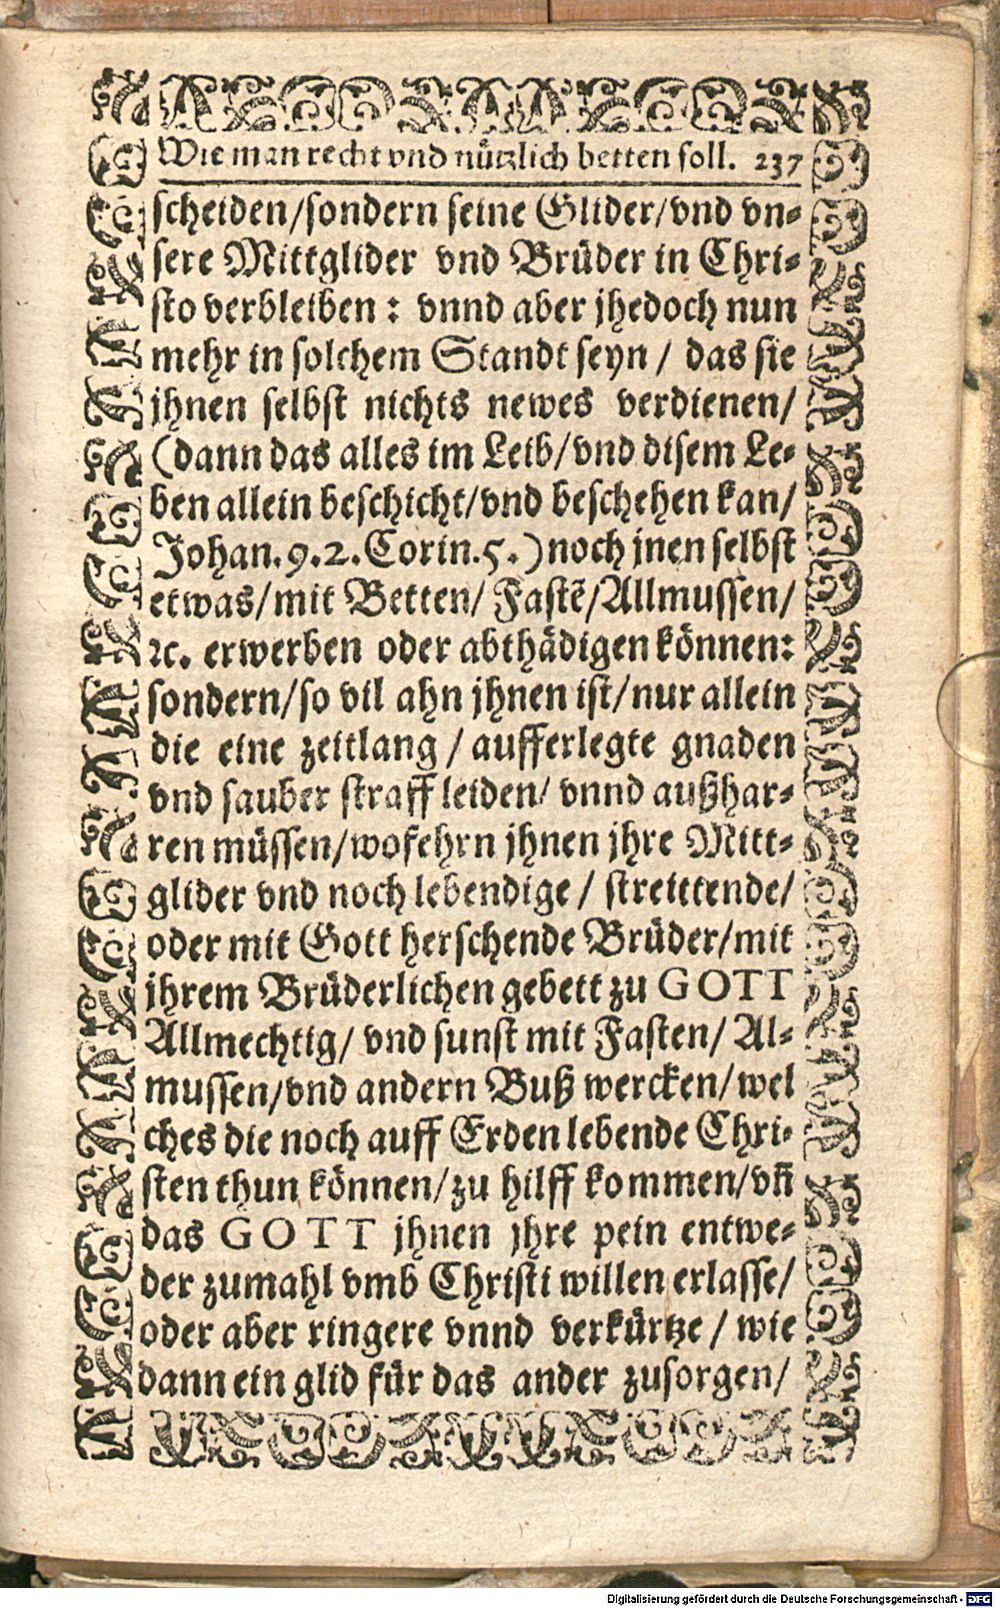 Wie man recht vnd nützlich betten soll. 237
scheiden/sondern seine Glider/vnd vn-
sere Mittglider vnd Brüder in Chri-
sto verbleiben: vnnd aber jhedoch nun
mehr in solchem Standt seyn / das sie
jhnen selbst nichts newes verdienen/
(dann das alles im Leib/vnd disem Le-
ben allein beschicht/vnd beschehen kan/
Johan. 9. 2. Corin. 5.) noch jnen selbst
etwas/mit Betten/ Fastē/Allmussen/
ꝛc. erwerben oder abthädigen können:
sondern/so vil ahn jhnen ist/nur allein
die eine zeitlang / aufferlegte gnaden
vnd sauber straff leiden/ vnnd außhar-
ren müssen/wofehrn jhnen jhre Mitt-
glider vnd noch lebendige / streittende/
oder mit Gott herschende Brüder/mit
jhrem Brüderlichen gebett zu GOTT
Allmechtig/ vnd sunst mit Fasten/ Al-
mussen/vnd andern Buß wercken/wel
ches die noch auff Erden lebende Chri-
sten thun können/zu hilff kommen/vñ
das GOTT jhnen jhre pein entwe-
der zumahl vmb Christi willen erlasse/
oder aber ringere vnnd verkürtze / wie
dann ein glid für das ander zusorgen/
Digitalisierung gefördert durch die Deutsche Forschungsgemeinschaft - DFG